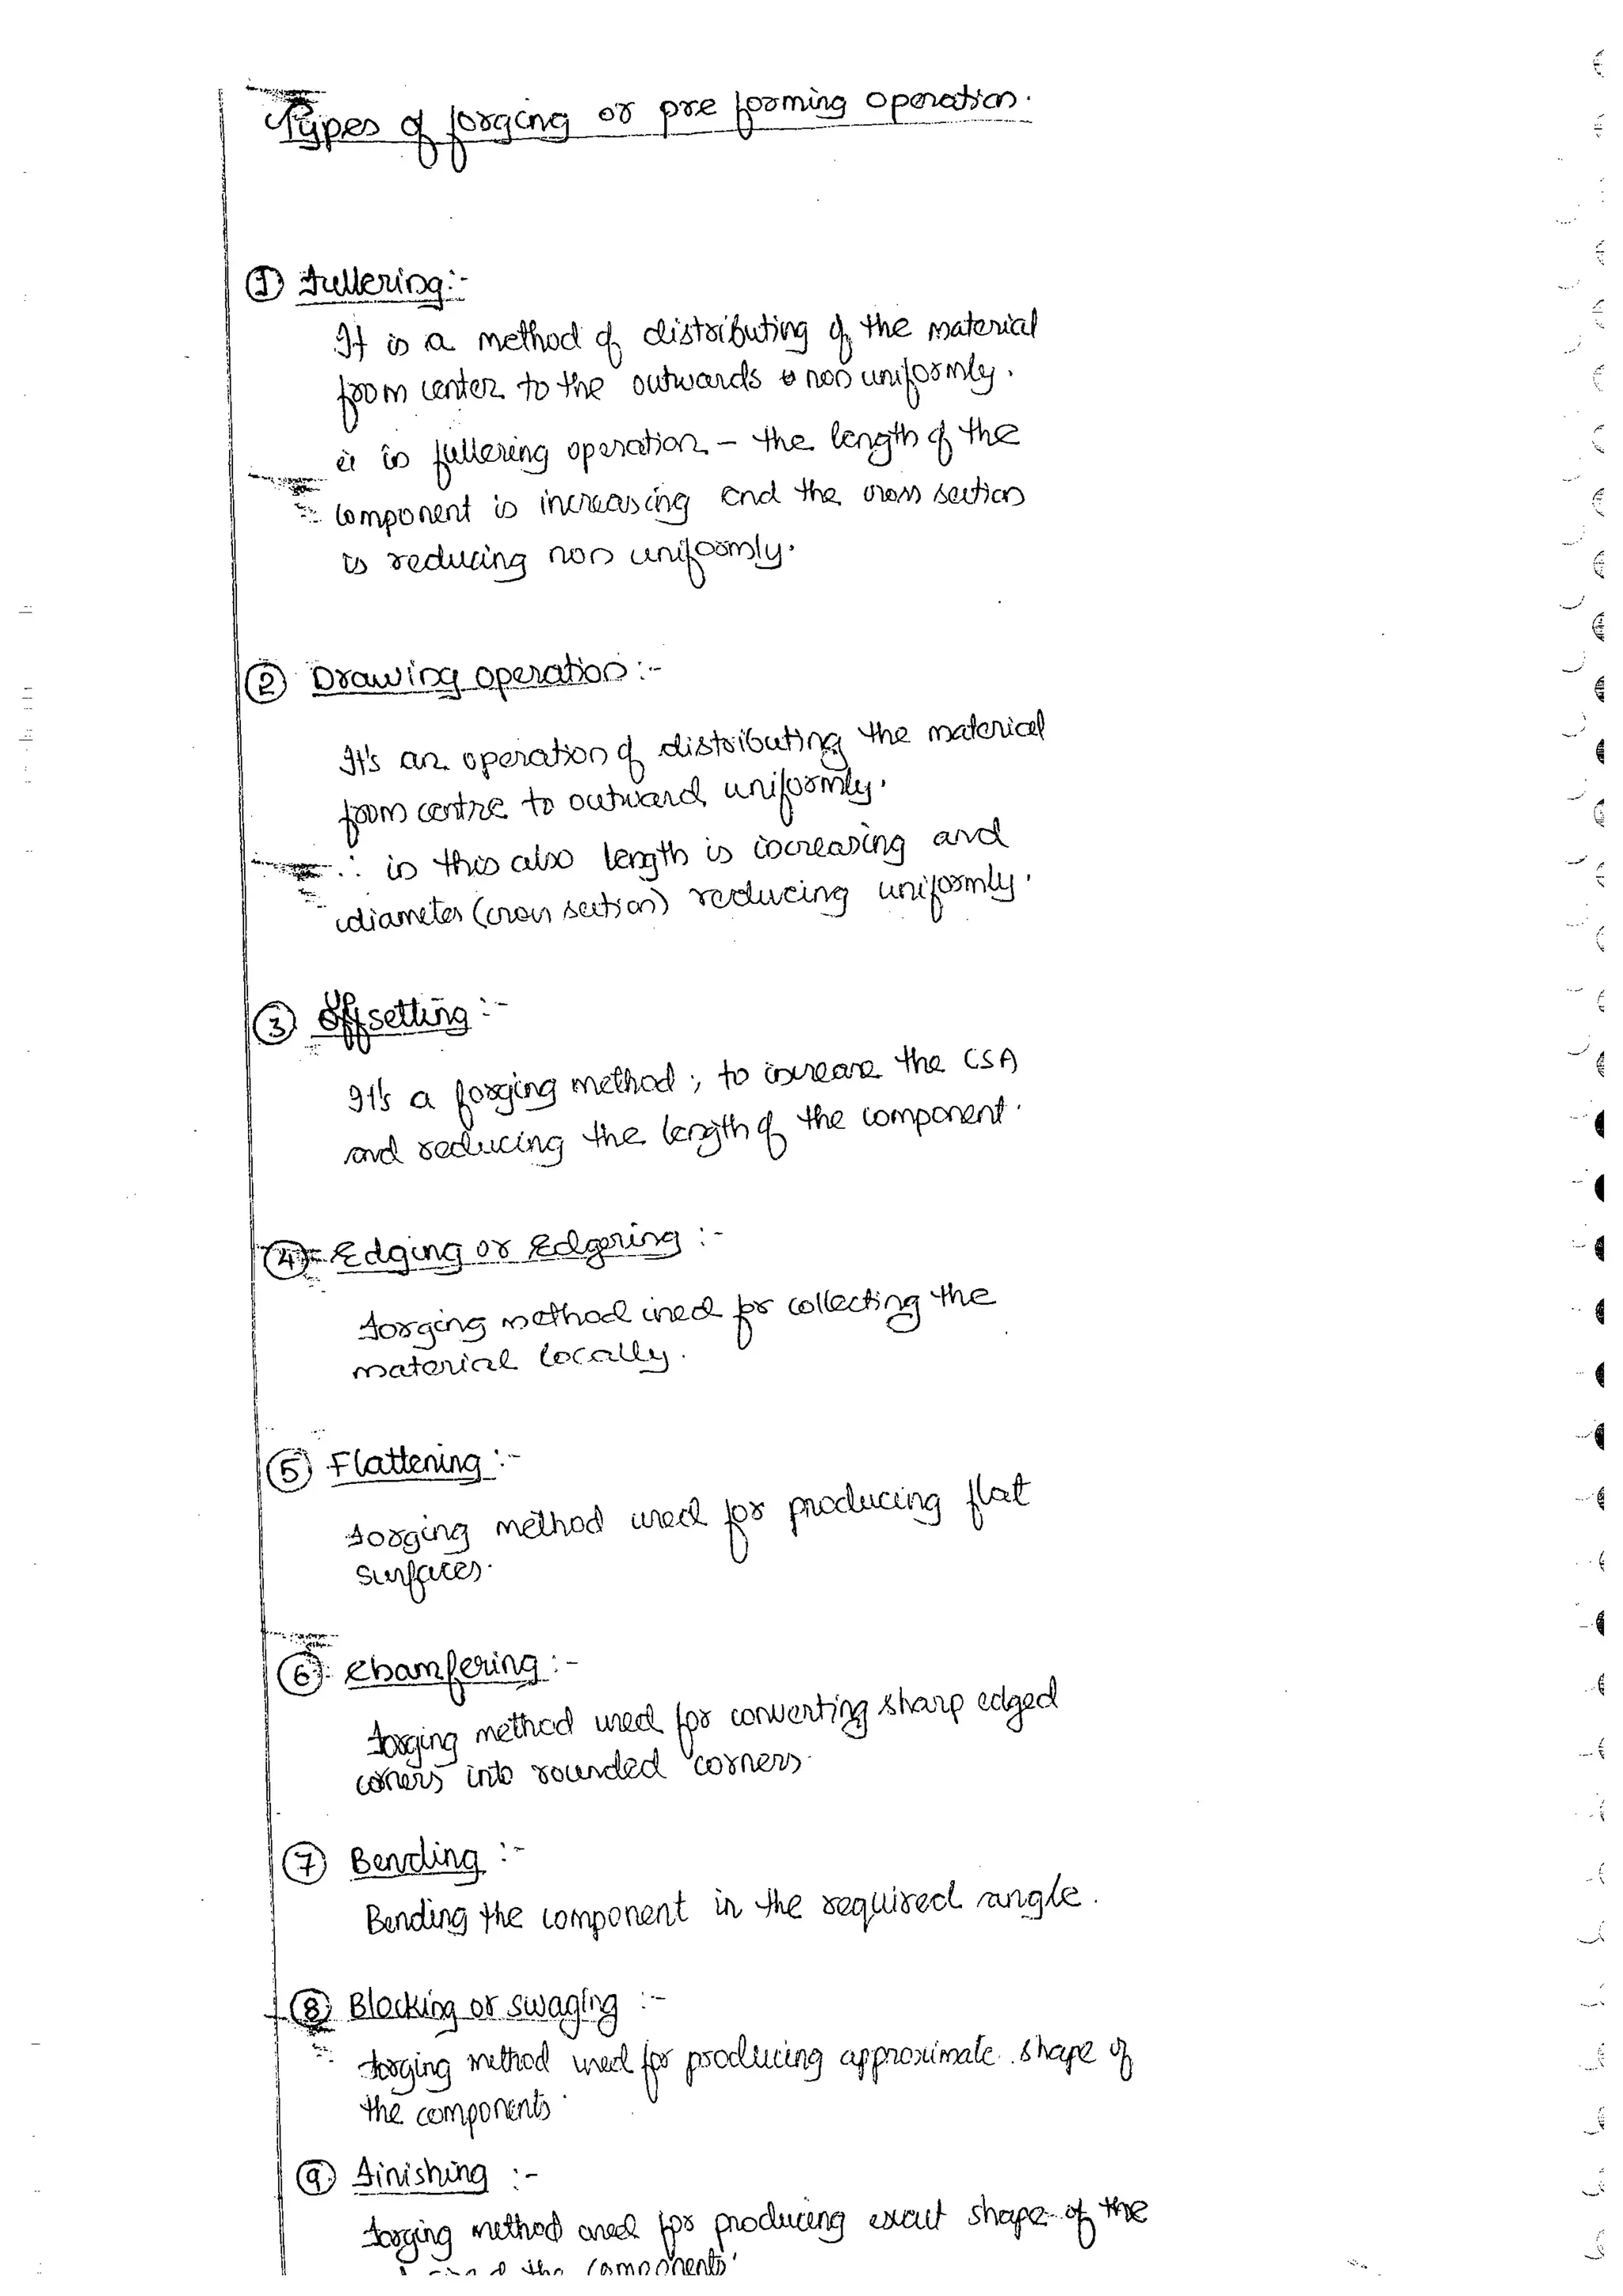 Types of forging or pre forming operation.
① Fullering:-
It is a method of distributing of the material
from center to the outwards non uniformly.
in fullering operation - the length of the
component is increasing and the cross section
is reducing non uniformly.
② Drawing operation :-
It's an operation of distributing the material
from centre to outward uniformly.
∴ in this also length is increasing and
diameter (cross section) reducing uniformly.
③ Upsetting :-
It's a forging method ; to increase the CSA
and reducing the length of the component.
④ Edging or Edgering :-
Forging method used for collecting the
material locally.
⑤ Flattening :-
Forging method used for producing flat
surfaces.
⑥ Chamfering :-
Forging method used for converting sharp edged
corners into rounded corners.
⑦ Bending :-
Bending the component in the required angle.
⑧ Blocking or swaging :-
Forging method used for producing approximate shape of
the components.
⑨ Finishing :-
Forging method used for producing exact shape of the
the components.